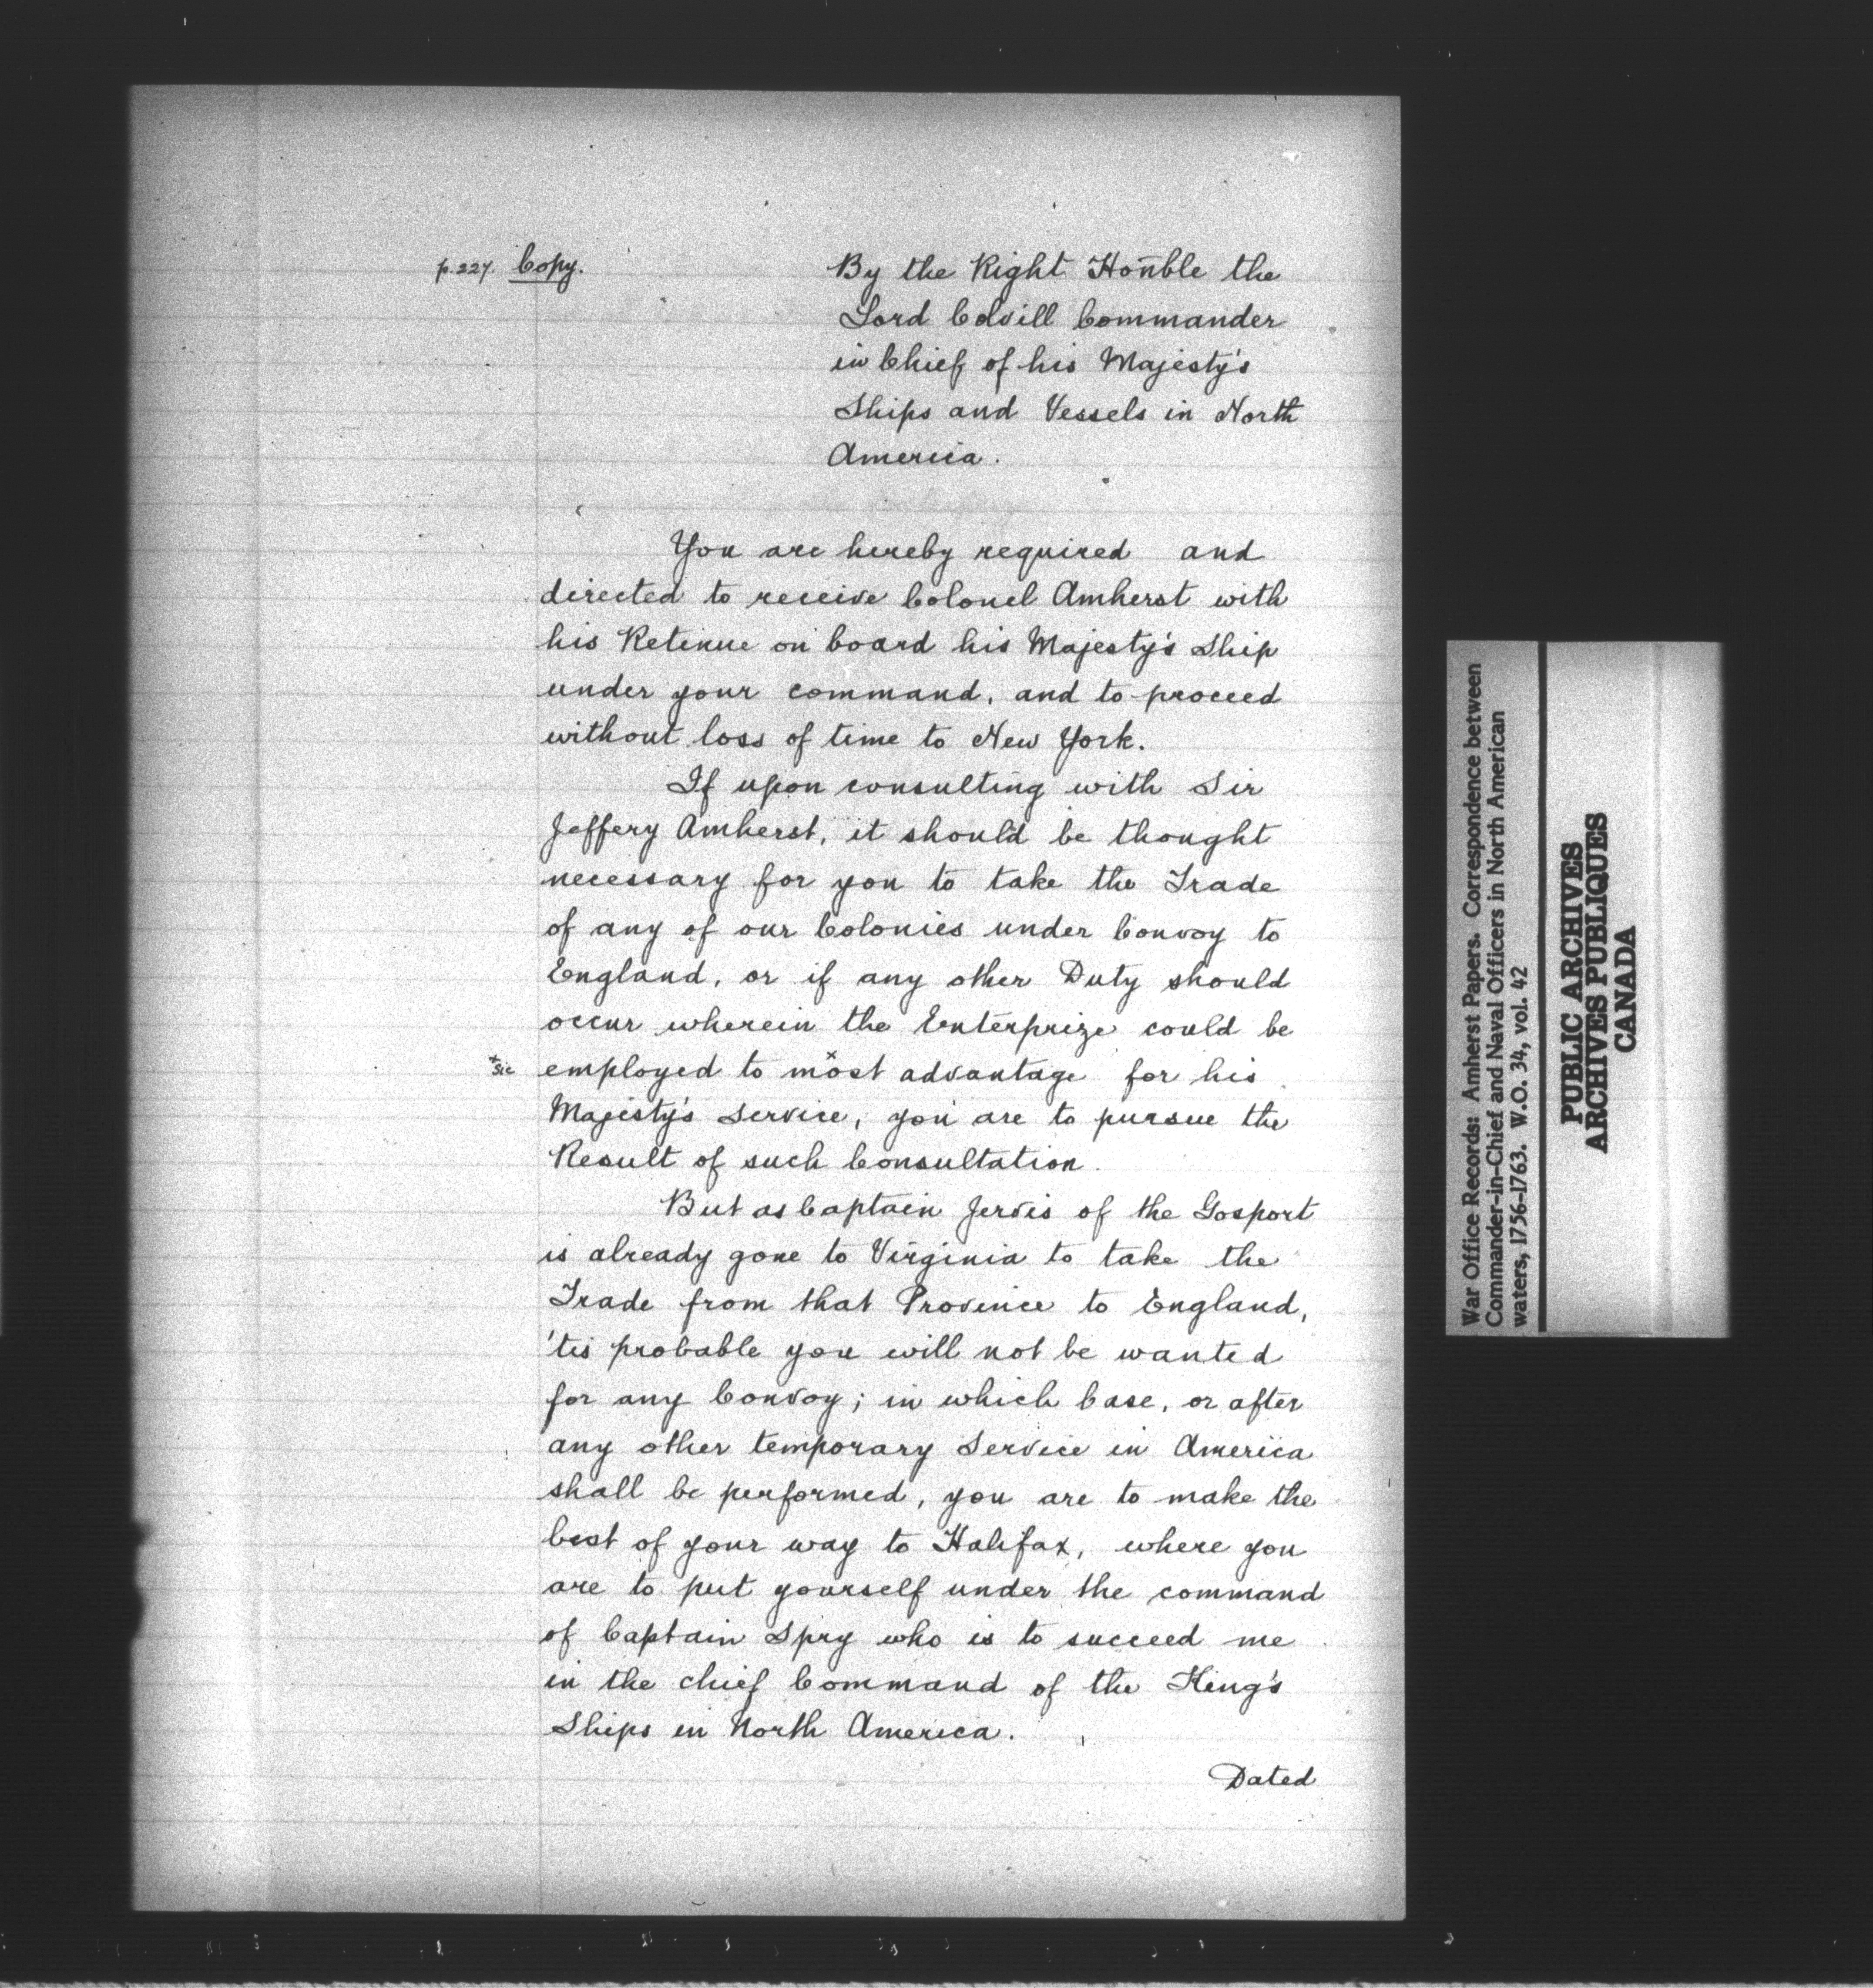 p. 227. Copy.
By the Right Hon̄ble the
Lord Colvill Commander
in Chief of his Majesty's
Ships and Vessels in North
America.
You are hereby required and
directed to receive Colonel Amherst with
his Retinue on board his Majesty's Ship
under your command, and to proceed
without loss of time to New York.
If upon consulting with Sir
Jeffery Amherst, it should be thought
necessary for you to take the Trade
of any of our Colonies under Convoy to
England, or if any other Duty should
occur wherein the Enterprize could be
x sic employed to most x advantage for his
Majesty's Service, you are to pursue the
Result of such Consultation.
But as Captain Jervis of the Gosport
is already gone to Virginia to take the
Trade from that Province to England,
'tis probable you will not be wanted
for any Convoy; in which Case, or after
any other temporary Service in America
shall be performed, you are to make the
best of your way to Halifax, where you
are to put yourself under the command
of Captain Spry who is to succeed me
in the chief Command of the King's
Ships in North America.
Dated
War Office Records: Amherst Papers. Correspondence between
Commander-in-Chief and Naval Officers in North American
waters, 1756-1763. W.O. 34, vol. 42
PUBLIC ARCHIVES
ARCHIVES PUBLIQUES
CANADA